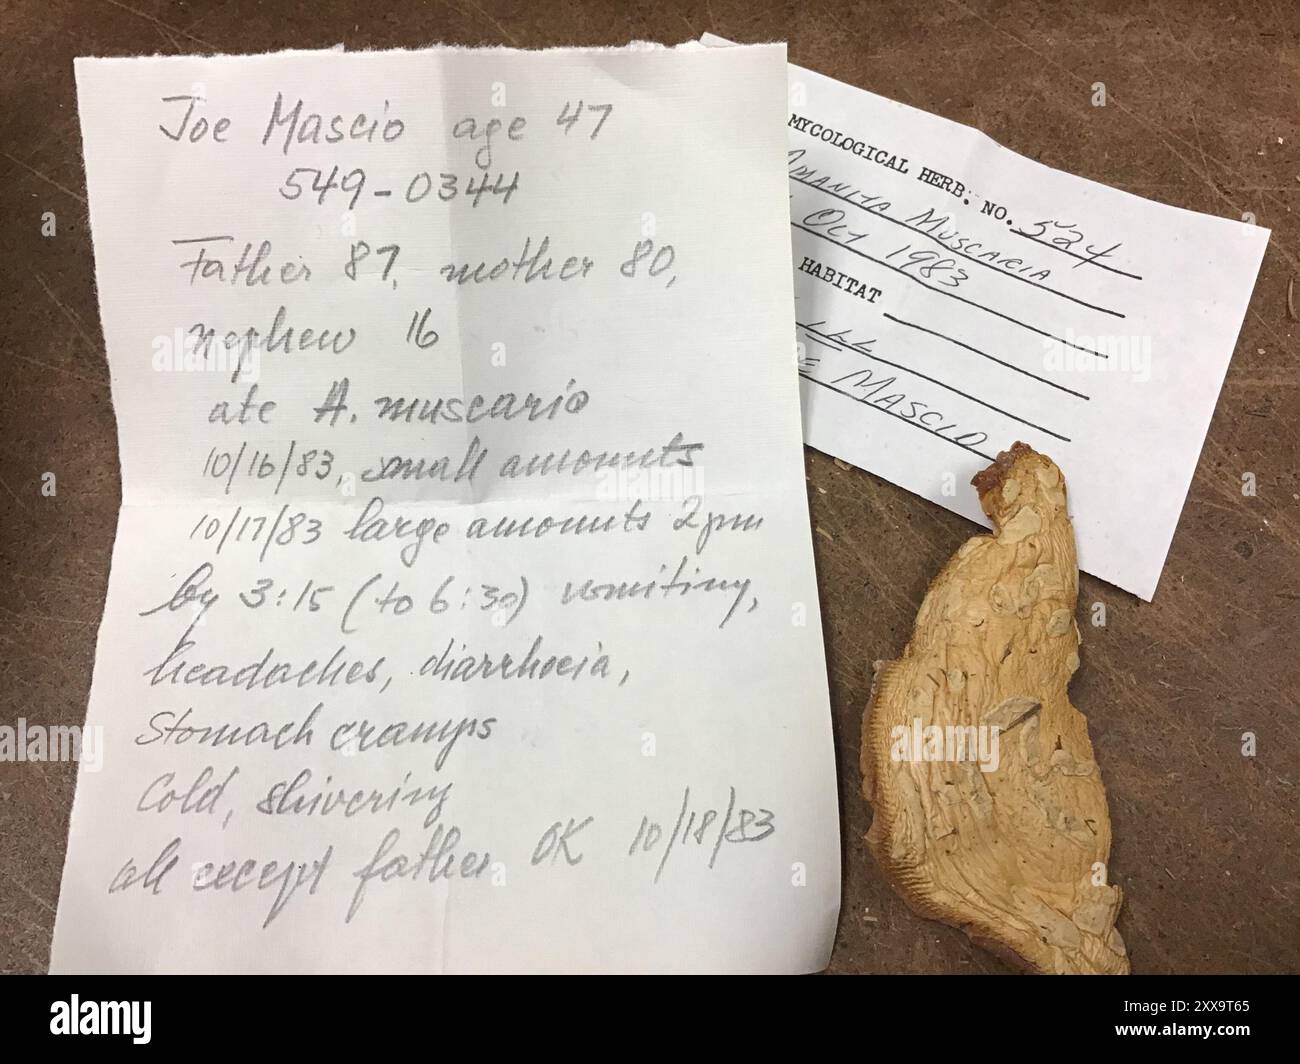 Joe Mascio age 47
549-0344
Father 87, mother 80,
nephew 16
ate A. muscaria
10/16/83, small amounts
10/17/83 large amounts 2pm
by 3:15 (to 6:30) vomiting,
headaches, diarrhoeia,
Stomach cramps
Cold, shivering
all except father OK 10/18/83
MYCOLOGICAL HERB. NO. 524
AMANITA MUSCARIA
OCT 1983
HABITAT
MASCIO
alamy
Image ID: 2XX9T65
www.alamy.com